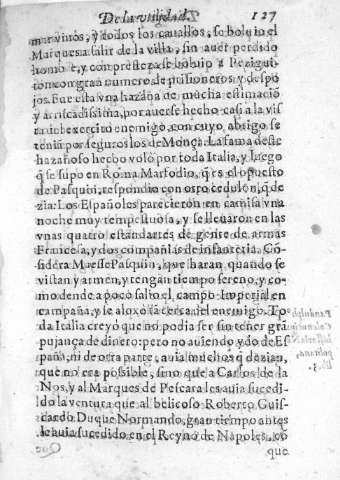 De la vtilidad. 127
marauiros, y todos los cauallos, se boluio el
Marques a salir de la villa, sin auer perdido
hombre, y con presteza se boluio a Pezigui-
ton con gran numero de prisioneros y despo
jos. Fue esta vna hazaña de mucha estimaciõ
y arriscadissima, por auerse hecho casi a la vis
ta del exercito enemigo, con cuyo abrigo se
teniã por seguros los de Monça. La fama deste
hazañoso hecho volò por toda Italia, y luego
q̃ se supo en Roma Marfodio, q̃ es el opuesto
de Pasquin, respondio con otro cedulon, q̃ de
zia: Los Españoles parecieron en camisa vna
noche muy tempestuosa, y se lleuaron en las
vnas quatro estandartes de gente de armas
Francesa, y dos compañias de infanteria. Cõ-
sidera Maese Pasquin, que haran quando se
vistan y armen, y tengan tiempo sereno, y co-
mo dende a poco saliò el campo Imperial en
campaña, y se aloxò cerca del enemigo. To
da Italia creyò que no podia ser sin tener grã
pujança de dinero: pero no auiendo ydo de Es
paña, ni de otra parte, auia muchos q̃ dezian,
que no era possible, sino que a Carlos de la
Nos, y al Marques de Pescara les auia sucedi-
do la ventura que al belicoso Roberto Guis-
cardo Duque Normando, gran tiempo antes
le auia sucedido en el Reyno de Napoles, co
que